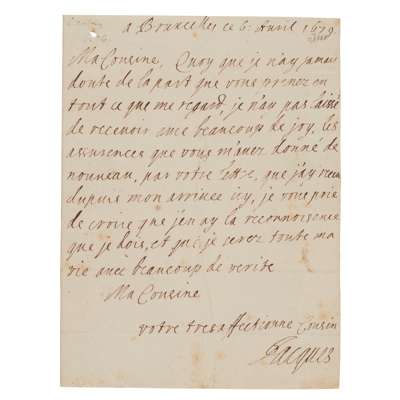 a Bruxelles ce 6: Avril 1679
Ma Cousine, Quoy que je n'ay jamais
doute de la part que vous prenez en
tout ce que me regard, je n'ay pas laissé
de recevoir avec beaucoup de joy, les
assurences que vous m'avez donné de
nouveau, par votre lettre, que j'ay receu
dupuis mon arrivee icy, je vous prie
de croire que j'en ay la reconnoisence
que je dois, et que je serez toute ma
vie avec beaucoup de verite
Ma Cousine
votre tresaffectionne Cousin
Jacques